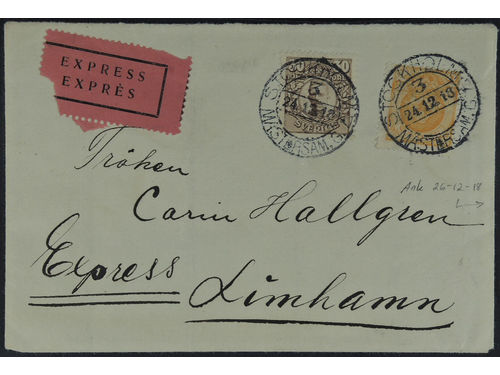 EXPRESS
EXPRÈS
STOCKHOLM
3
24.12.18
MÄSTERSAM.G.
STOCKHOLM
3
24.12.18
MÄSTERSAM.G.
Fröken
Carin Hallgren
Ank 26-12-18
Express Limhamn